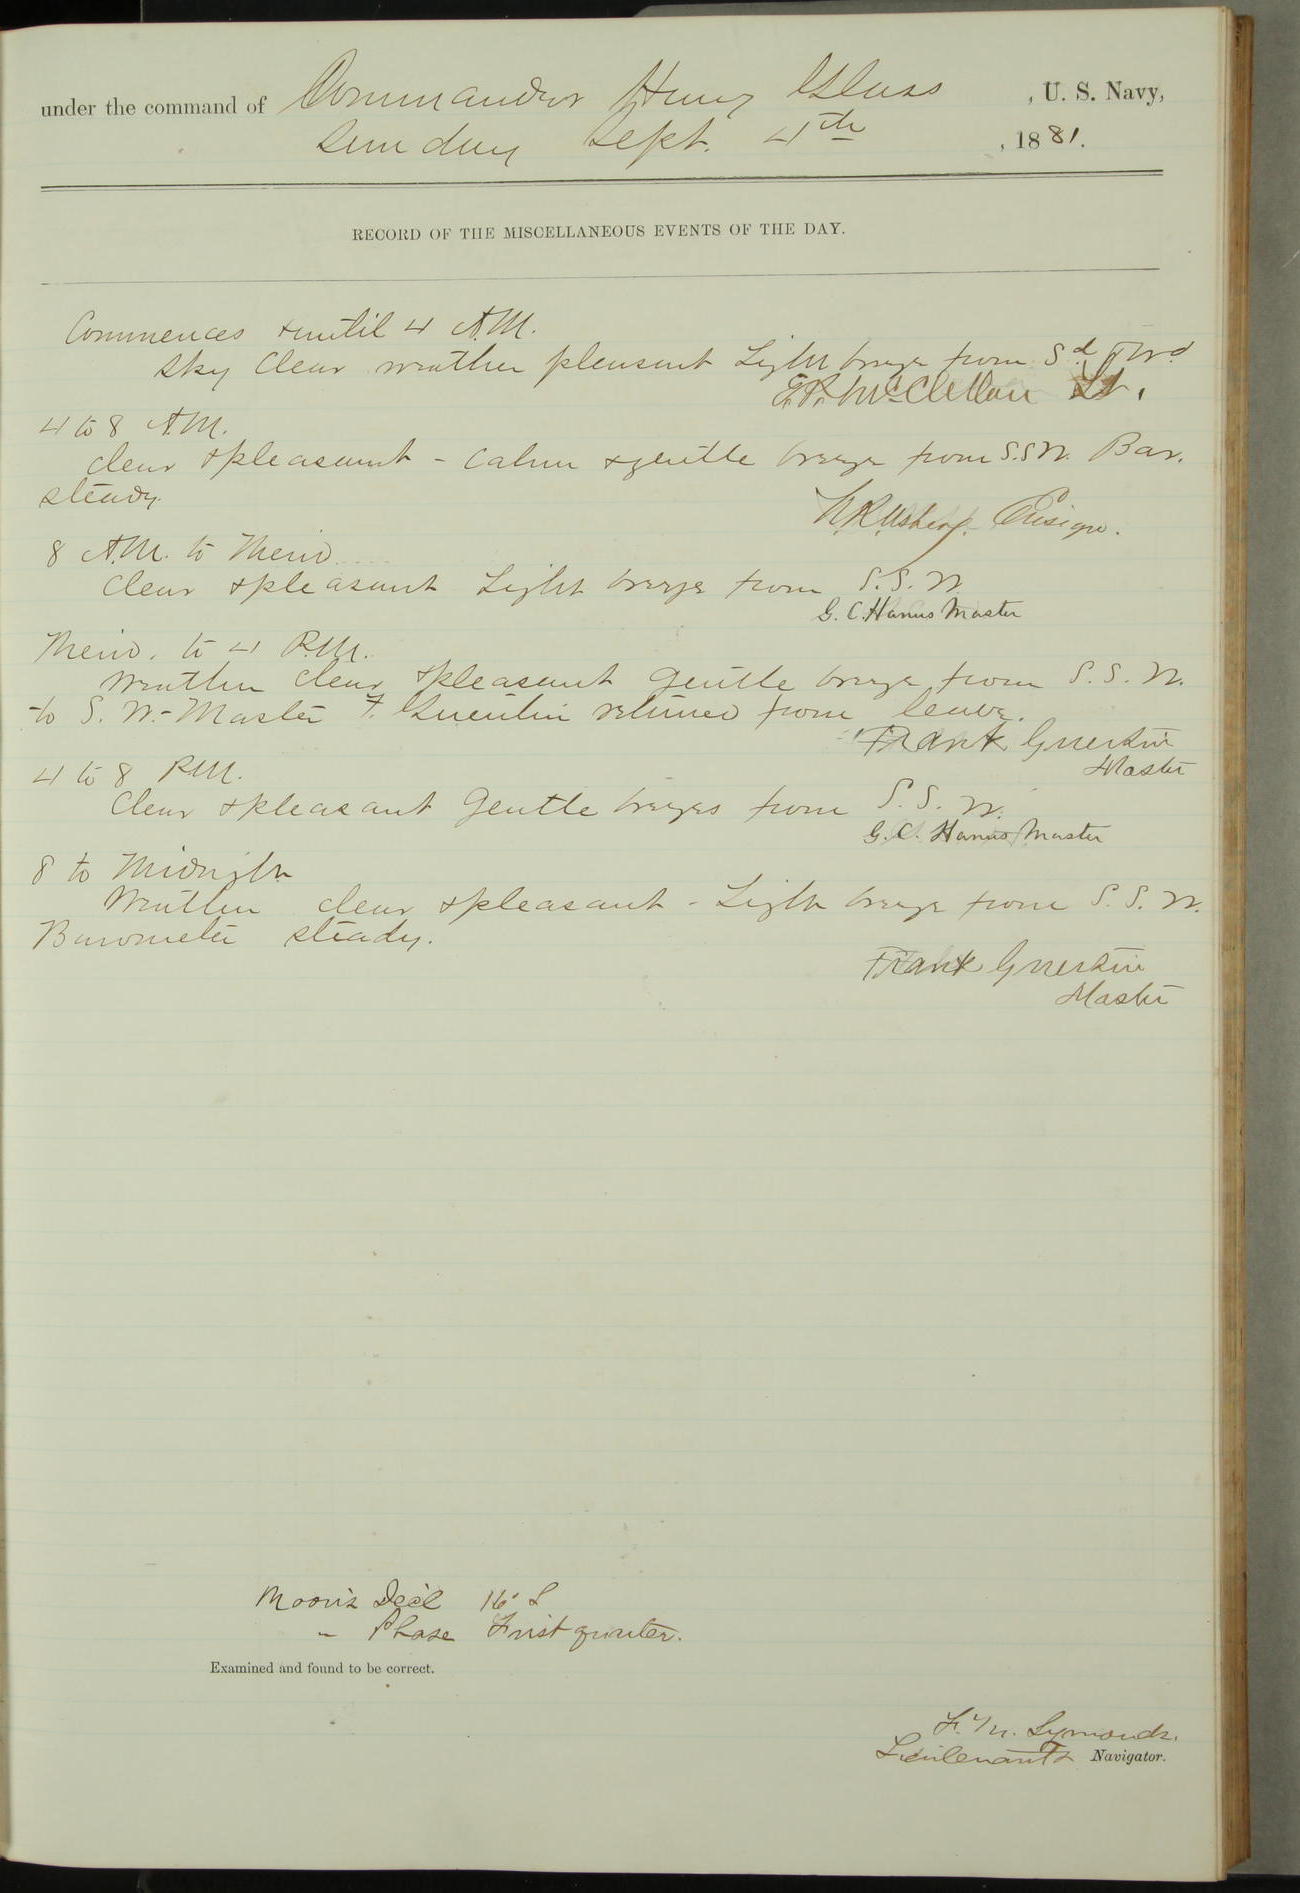 under the command of Commander Henry Glass, U. S. Navy,
Sunday Sept. 4th, 1881.
RECORD OF THE MISCELLANEOUS EVENTS OF THE DAY.
Commences & until 4 A.M.
Sky Clear weather pleasant Light breeze from Sd & Wd
E. W. McClellan Lt.
4 to 8 A.M.
Clear & pleasant - Calm & gentle breeze from S.S.W. Bar.
steady.
N. R. Usher, Ensign.
8 A.M. to Merid.
Clear & pleasant Light breeze from S. S. W
G. C. Hanus Master
Merid. to 4 P.M.
Weather clear & pleasant gentle breeze from S. S. W.
to S. W. - Master F. Guertin returned from leave.
Frank Guertin
Master
4 to 8 P.M.
Clear & pleasant Gentle breezes from S. S. W.
G. C. Hanus Master
8 to Midnight
Weather clear & pleasant - Light breeze from S. S. W.
Barometer steady.
Frank Guertin
Master
Moon's Decl 16° S
" Phase First quarter.
Examined and found to be correct.
F. M. Symonds.
Lieutenant & Navigator.